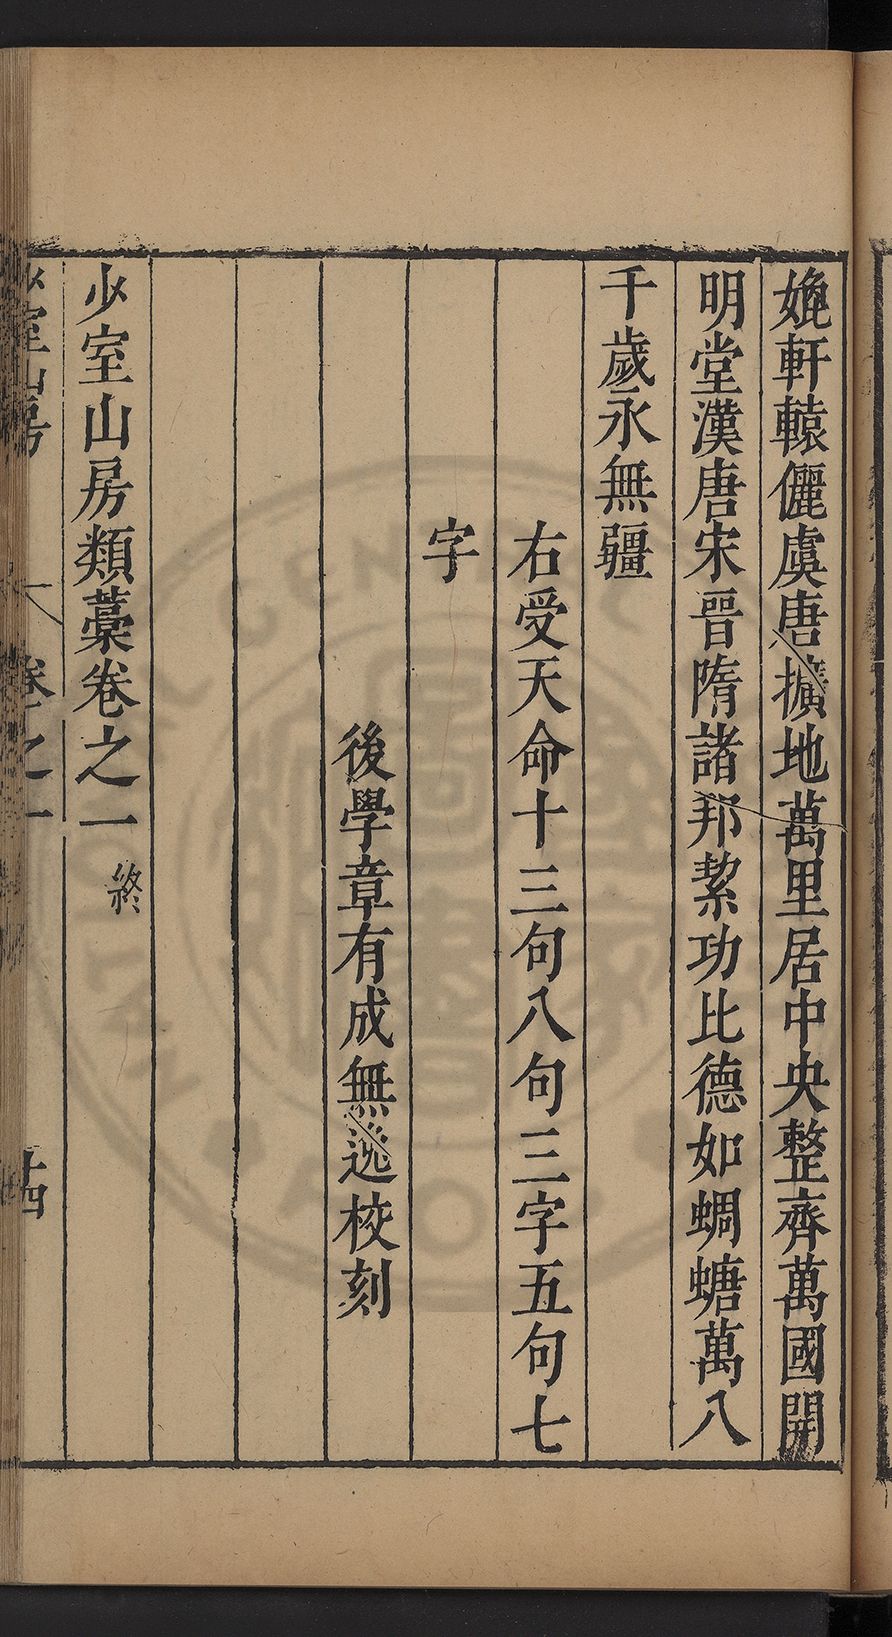 㝃軒轅儷虞唐擴地萬里居中央整齊萬國開
明堂漢唐宋晉隋諸邦絜功比德如蜩螗萬八
千歲永無疆
右受天命十三句八句三字五句七
字
後學章有成無逸校刻
少室山房類藁卷之一終
少室山房
卷之一
十四